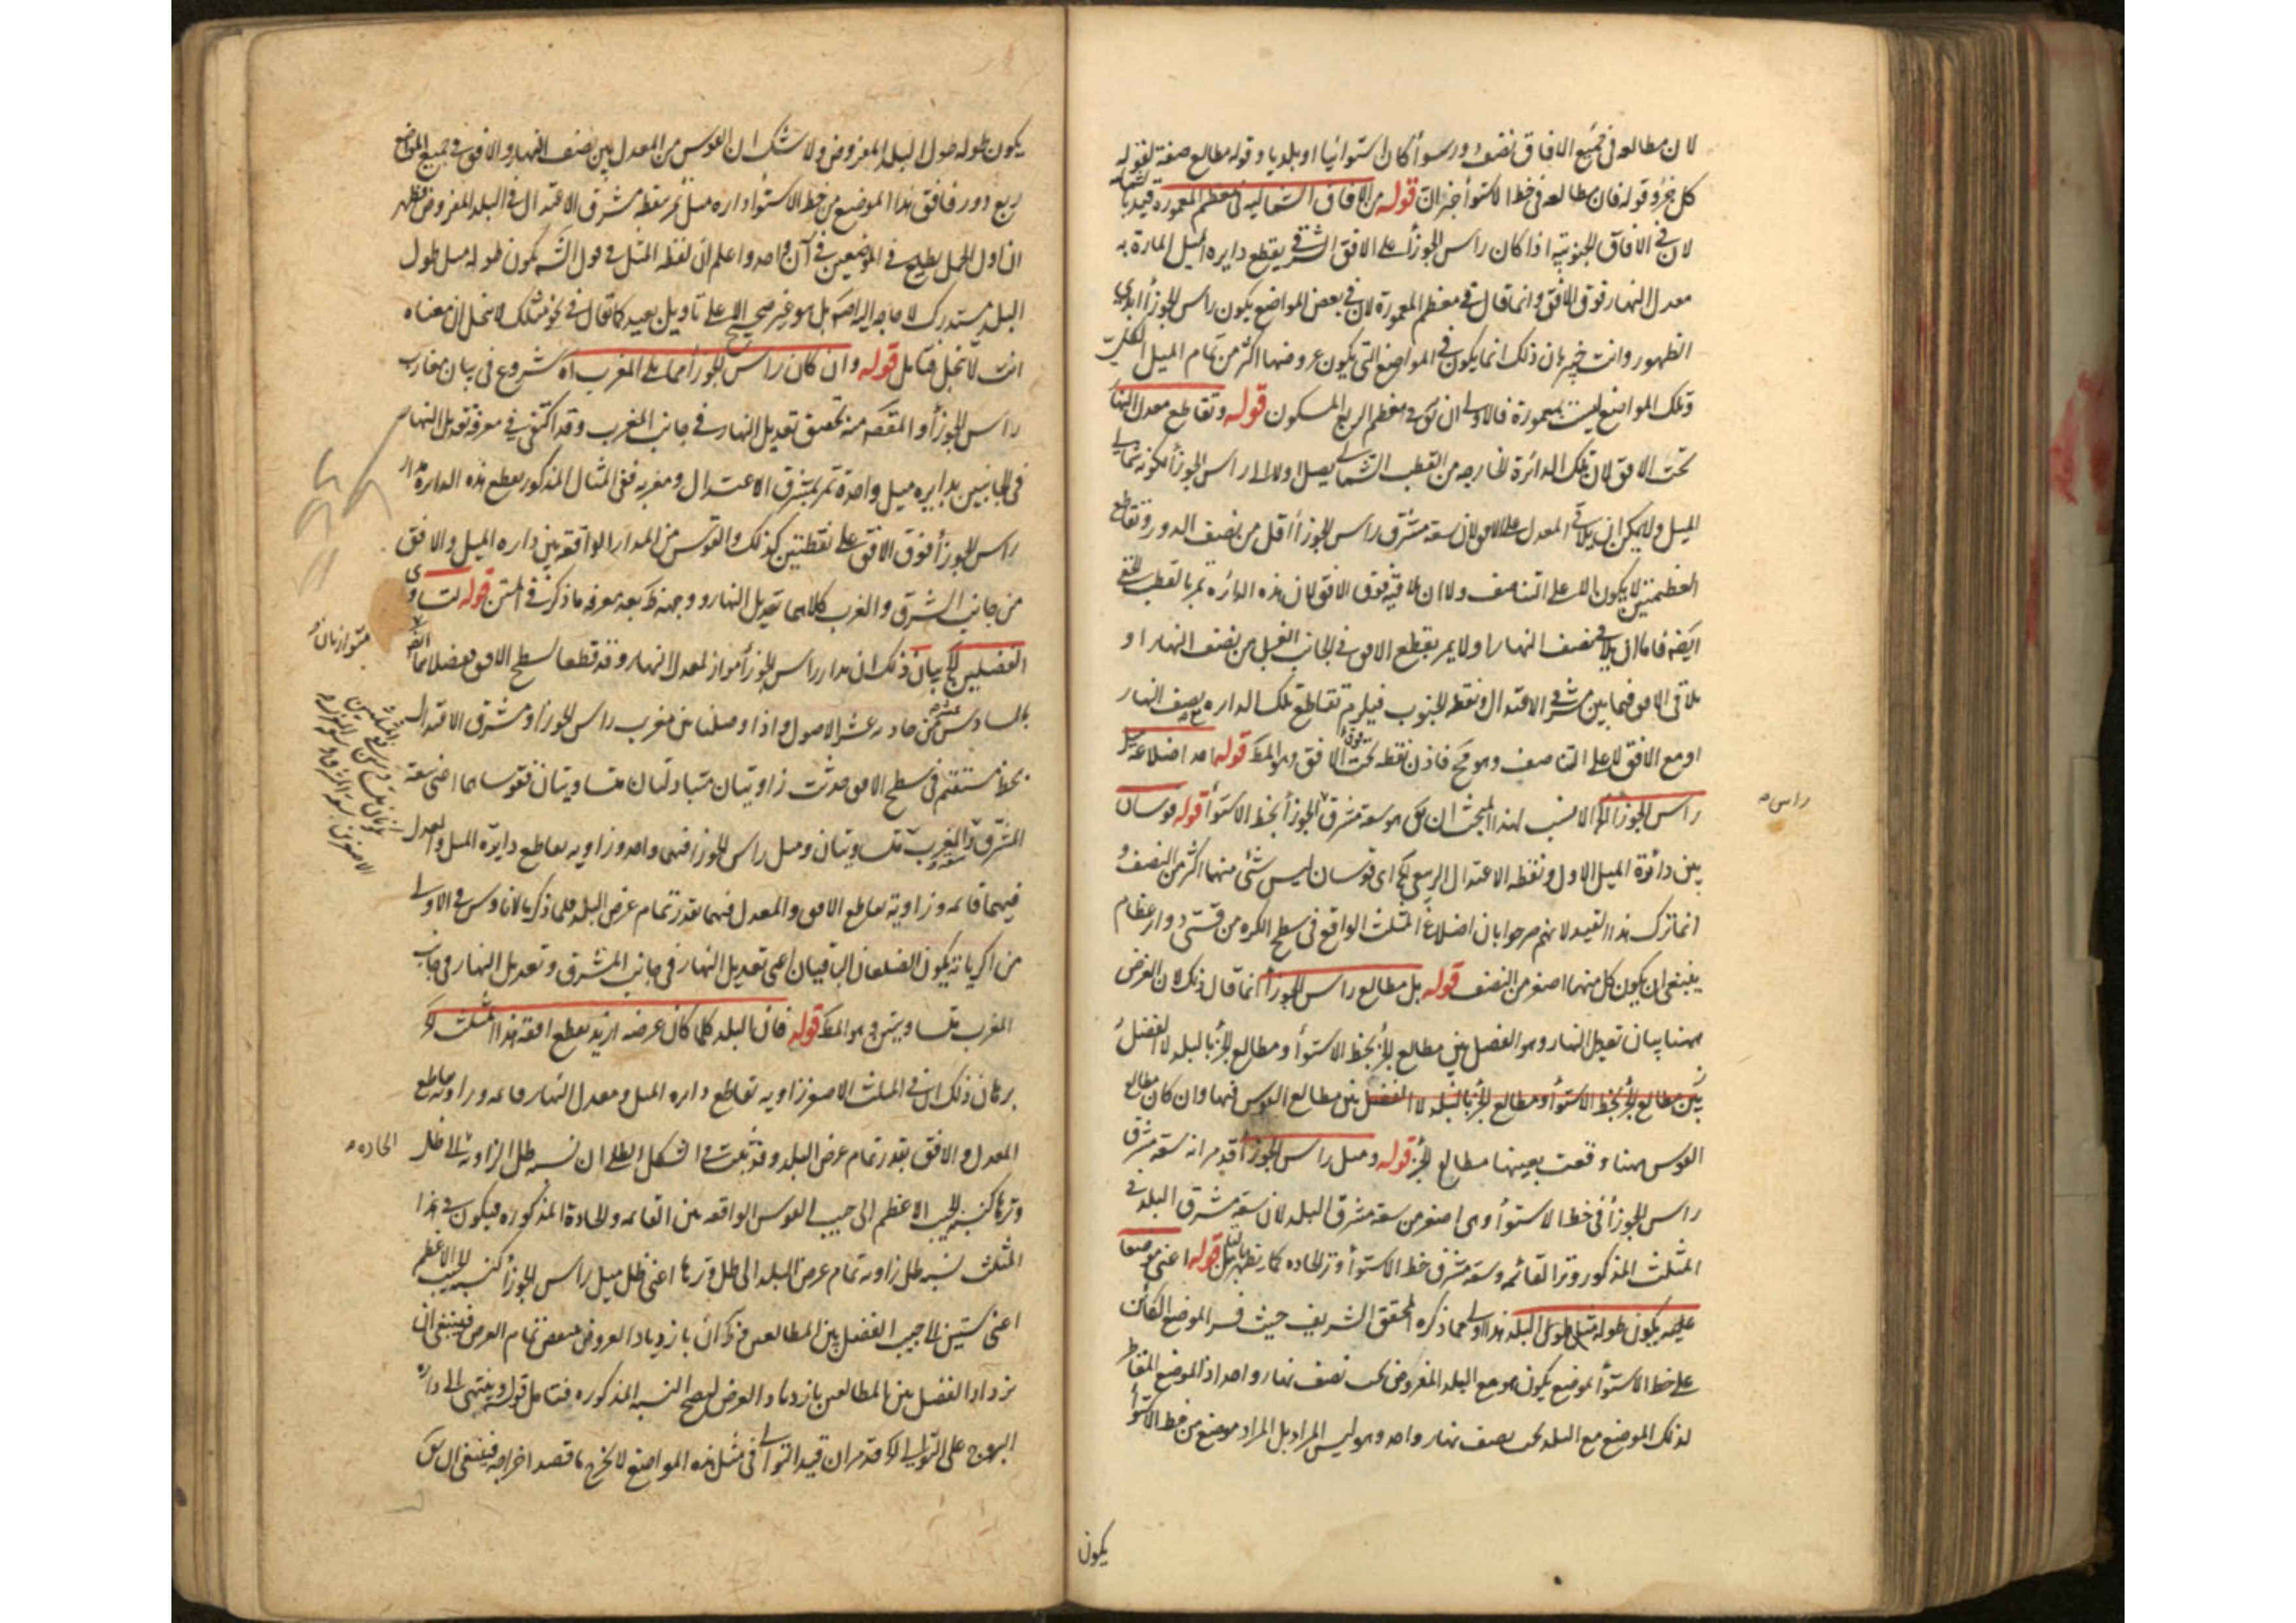 لان مطالعه فى جميع الافاق نصف دور سوأ كان استوائيا او بلديا وقوله مطالع صفة لقوله
كل جزؤ وقوله فان مطالعه فى خط الاستوأ خبر ان قوله من الافاق الشماليه فى معظم المعموره قيد بالشماليه
لان فى الافاق الجنوبية اذا كان راس الجوزأ على الافق الشرقى يقطع دايره الميل المارة به
معدل النهار فوق الافق وانما قال فى معظم المعمورة لان فى بعض المواضع يكون راس الجوزأ ابدى
الظهور وانت خبير بان ذلك انما يكون فى المواضع التى يكون عروضها اكثر من تمام الميل الكلى
وتلك المواضع ليست بمعمورة فالاولى ان يق فى معظم الربع المسكون قوله وتقاطع معدل النهار
تحت الافق لان تلك الدائرة الخارجه من القطب الشمالى يصل اولا الى راس الجوزأ لكونه شمالى
الميل ولا يمكن ان يلاقى المعدل على الافق لان سعة مشرق راس الجوزأ اقل من نصف الدور وتقاطع
العظيمتين لا يكون الا على التناصف ولا ان يلاقيه فوق الافق لان هذه الدائره تمر بالقطب الخفى
ايضه فاما ان يلاقى نصف النهار اولا ثم يقطع الافق فى الجانب الغربى من نصف النهار او
يلاقى الافق فيما بين مشرق الاعتدال ونقطه الجنوب فيلزم تقاطع تلك الداره مع نصف النهار
او مع الافق لا على التناصف وهو مح فاذن نقطه تحت الافق وهو المط قوله احد اضلاعه ميل
راس الجوزأ الخ الانسب لهذا المبحث ان يق هو سعة مشرق الجوزأ بخط الاستوأ قوله قوسان
راس
بين دائرة الميل الاول ونقطه الاعتدال الربيعى الخ اى قوسان ليس شئ منهما اكثر من النصف و
انما ترك هذا القيد لانهم صرحوا بان اضلاع المثلث الواقع فى سطح الكره من قسى دوار عظام
ينبغى ان يكون كل منهما اصغر من النصف قوله بل مطالع راس الجوزأ انما قال ذلك لان الغرض
ههنا بيان تعديل النهار وهو الفضل بين مطالع الجزؤ بخط الاستوأ ومطالع الجزؤ بالبلد لا الفضل
بين مطالع الجزؤ بخط الاستوأ ومطالع الجزؤ بالبلد لا الفضل بين مطالع القوس فيها وان كان مطالع
القوس ههنا وقعت بعينها مطالع الجزؤ قوله وميل راس الجوزأ قد مر انه سعة مشرق
راس الجوزأ فى خط الاستوأ وهى اصغر من سعة مشرق البلد لان سعة مشرق البلد فى
المثلث المذكور وتر القائمه وسعة مشرق خط الاستوأ وتر الحاده كما يظهر بالتأمل قوله اعنى موضعا
عليه يكون طوله مثل طول البلد هذا اولى مما ذكره المحقق الشريف حيث فسر الموضع الكائن
على خط الاستوأ بموضع يكون هو مع البلد المفروض تحت نصف نهار واحد اذ الموضع المقاطر
لذلك الموضع مع البلد تحت نصف نهار واحد وهو ليس المراد بل المراد موضع من خط الاستوأ
يكون
يكون طوله طول البلد المفروض ولا شك ان القوس من المعدل بين نصف النهار والافق فى جميع المواضع
ربع دور فافق هذا الموضع من خط الاستوأ داره ميل تمر بنقطه مشرق الاعتدال فى البلد المفروض فظهر
ان اول الحمل يطلع فى الموضعين فى آن واحد واعلم ان لفظه المثل فى قول الش يكون طوله مثل طول
البلد مستدرك لا حاجه اليه اصه بل هو غير صحيح الا على تاويل بعيد كما يقال فى نحو مثلك لا يبخل ان معناه
انت لا تبخل فتامل قوله وان كان راس الجوزأ مما يلى المغرب اه شروع فى بيان مغارب
راس الجوزأ والمقصد منه تحقيق تعديل النهار فى جانب المغرب وقد اكتفى فى معرفة تعديل النهار
فى الجانبين بدايره ميل واحدة تمر بمشرق الاعتدال ومغربه ففى المثال المذكور يقطع هذه الداره مدار
راس الجوزأ فوق الافق على نقطتين كذلك والقوس من المدار الواقعة بين داره الميل والافق
من جانب الشرق والغرب كلاهما تعديل النهار ووجهه ظ بعد معرفه ما ذكر فى المتن قوله لتساوى
الفضلين الخ بيان ذلك ان مدار راس الجوزأ مواز لمعدل النهار وقد قطعا بسطح الافق ففصلاهما
بالسادس عشر من حادى عشر الاصول واذا وصلنا بين مغرب راس الجوزأ ومشرق الاعتدال
بخط مستقيم فى سطح الافق حدثت زاويتان متبادلتان متساويتان فقوساهما اعنى سعة
المشرق والمغرب متساويتان وميل راس الجوزأ فيهما واحد وزاويه تقاطع دايرة الميل والمعدل
فيهما قائمه وزاوية تقاطع الافق والمعدل فيهما بقدر تمام عرض البلد فلما ذكر مالاناوس فى الاولى
من اكرياته يكون الضلعان الباقيان اعنى تعديل النهار فى جانب المشرق وتعديل النهار فى جانب
المغرب متساويتين وهو المط قوله فان البلد كلما كان عرضه ازيد يقطع افقه هذا المثلث الخ
برهان ذلك ان فى المثلث الاصغر زاويه تقاطع داره الميل ومعدل النهار قائمه وزاوية تقاطع
المعدل والافق بقدر تمام عرض البلد وقد ثبت فى الشكل الظلى ان نسبه ظل الزاويه الى ظل
الحاده
وترها كنسبه الجيب الاعظم الى جيب القوس الواقعه بين القائمه والحادة المذكوره فيكون فى هذا
المثلث نسبه ظل زاويه تمام عرض البلد الى ظل وترها اعنى ظل ميل راس الجوزأ كنسبه الجيب الاعظم
اعنى ستين الى جيب الفضل بين المطالعين فظ ان بازدياد العروض ينقص تمام العرض فينبغى ان
يزداد الفضل بين المطالعين بازدياد العرض ليصح النسبه المذكوره فتامل قوله وينتهى الى داره
البروج على التوالى الخ قد مر ان قيد التوالى فى مثل هذه المواضع لا يخرج ما قصد اخراجه فينبغى ان يق